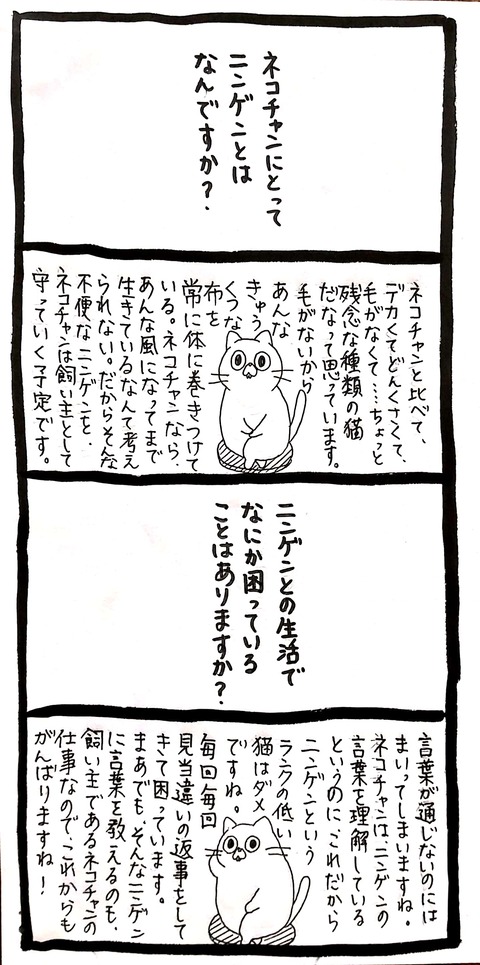 ネコチャンにとって
ニンゲンとは
なんですか？
ネコチャンと比べて、
デカくてどんくさくて、
毛がなくて……ちょっと
残念な種類の猫
だなって思っています。
毛がないから
あんな
きゅう
くつな
布を
常に体に巻きつけて
いる。ネコチャンなら、
あんな風になってまで
生きているなんて考え
られない。だからそんな
不便なニンゲンを、
ネコチャンは飼い主として
守っていく予定です。
ニンゲンとの生活で
なにか困っている
ことはありますか？
言葉が通じないのには
まいってしまいますね。
ネコチャンは、ニンゲンの
言葉を理解している
というのに、これだから
ニンゲンという
ランクの低い
猫はダメ
ですね。
毎回毎回
見当違いの返事をして
きて困っています。
まあでも、そんなニンゲン
に言葉を教えるのも、
飼い主であるネコチャンの
仕事なので、これからも
がんばりますね！